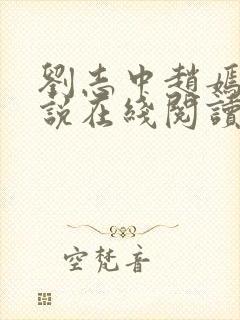 劉志中趙嫣
說在綫閱讀
空梵音